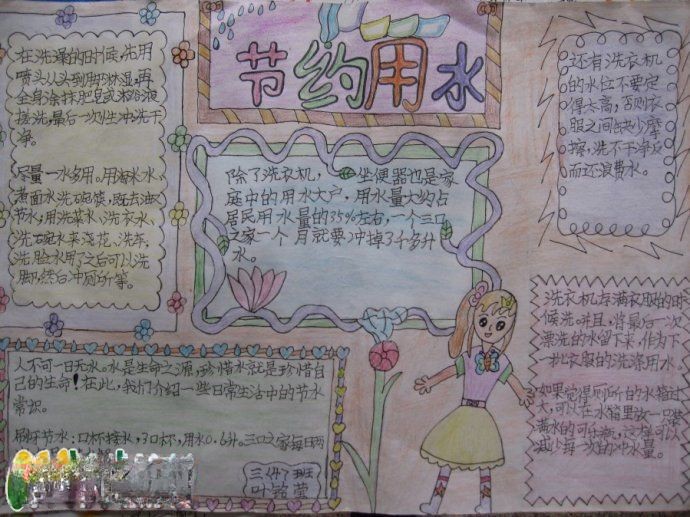 节约用水
在洗澡的时候,先用
喷头从头到脚淋湿,再
全身涂抹肥皂或沐浴液
搓洗,最后一次性冲洗干
净。
尽量一水多用。用淘米水、
煮面水洗碗筷,既去油又
节水,用洗菜水、洗衣水、
洗碗水来浇花、洗车,
洗脸水用了之后可以洗
脚,然后冲厕所等。
除了洗衣机,坐便器也是家
庭中的用水大户,用水量大约占
居民用水量的35%左右,一个三口
之家一个月就要冲掉了千多升
水。
还有洗衣机
的水位不要定
得太高,否则衣
服之间缺少摩
擦,洗不干净反
而还浪费水。
洗衣机存满衣服的时
候洗。并且,将最后一次
漂洗的水留下来,作为下
一批衣服的洗涤用水。
如果觉得厕所的水箱过
大,可以在水箱里放一只装
满水的可乐瓶,这样可以
减少每一次的冲水量。
人不可一日无水。水是生命之源,珍惜水就是珍惜自
己的生命!在此,我们介绍一些日常生活中的节水
常识。
刷牙节水:口杯接水,3口杯,用水0.6升。三口之家每日两
三(4)班
叶 莹